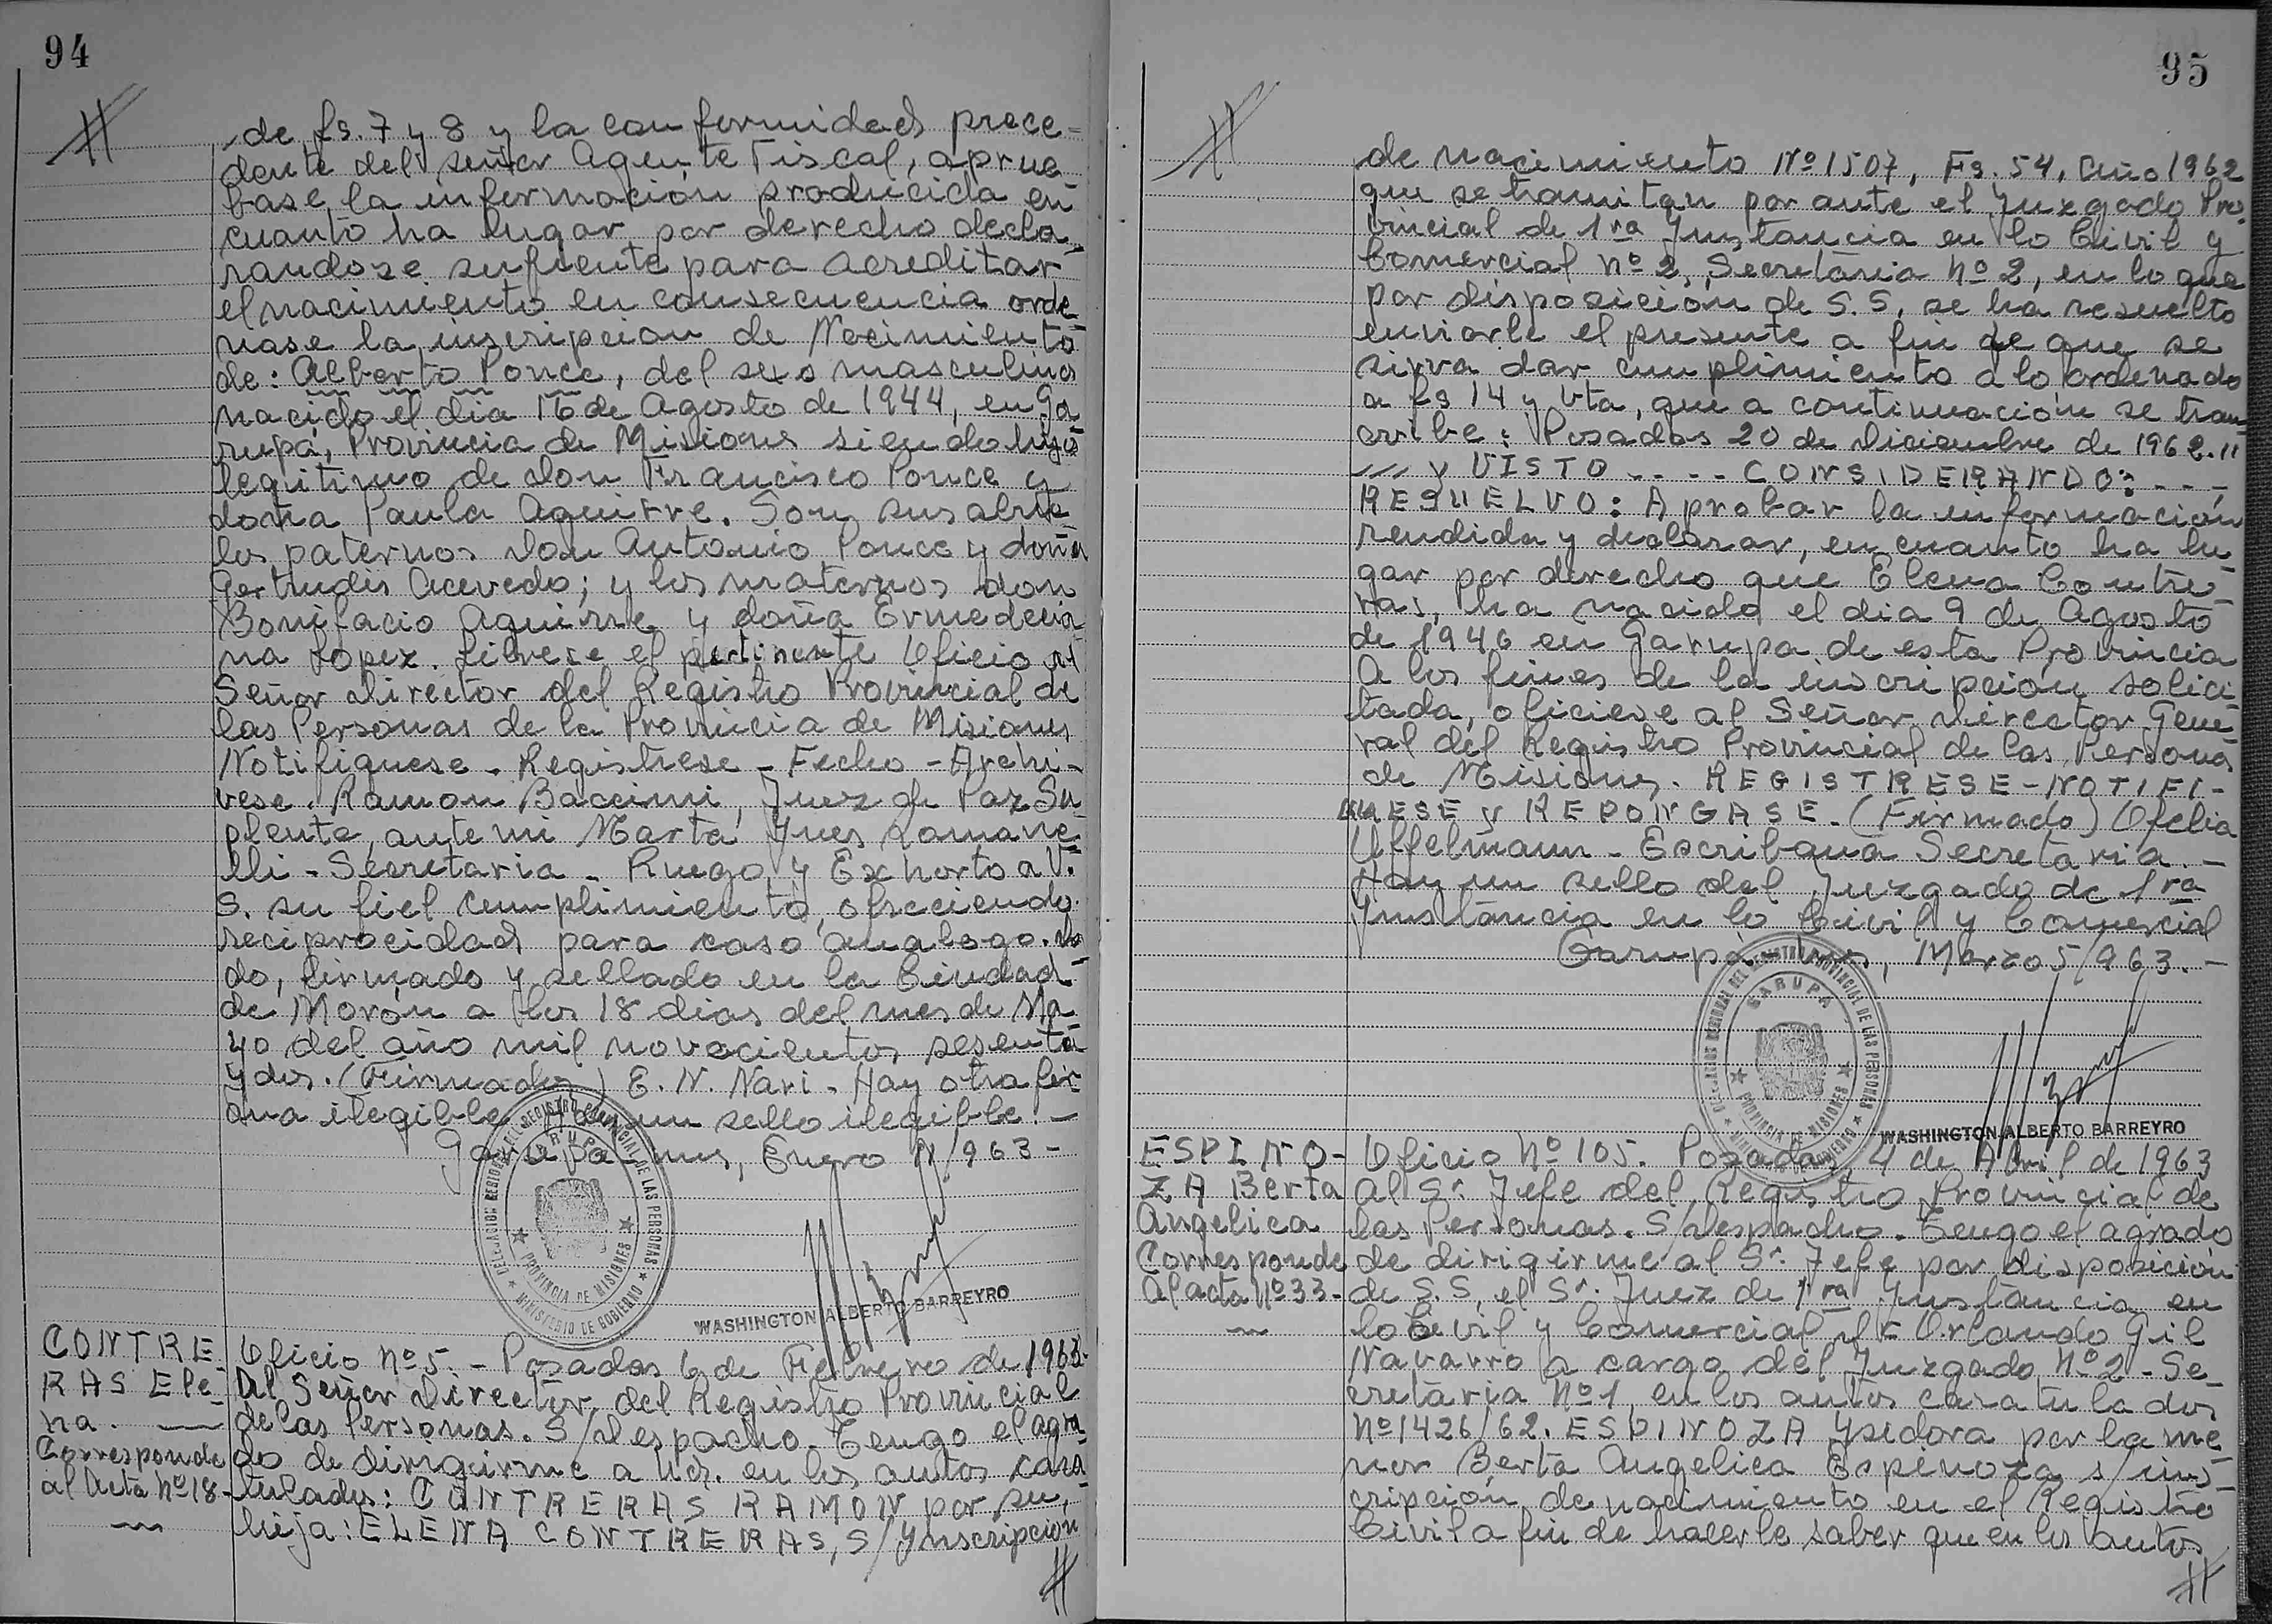 94
de fs. 7 y 8 y la conformidad prece=
dente del señor Agente Fiscal, aprue
base la información producida en
cuanto ha lugar por derecho decla
randose sufiente para acreditar
el nacimiento en consecuencia orde
nase la inscripcion de Nacimiento
de: Alberto Ponce, del sexo masculino
nacido el dia 16 de Agosto de 1944, en Ga
rupá, Provincia de Misiones siendo hijo
legitimo de don Francisco Ponce y
doña Paula Aguirre. Son sus abue
los paternos don Antonio Ponce y doña
Gertrudis Acevedo; y los maternos don
Bonifacio Aguirre y doña Ermedecia
na Lopez. Librese el pertinente Oficio al
Señor Director del Registro Provincial de
las Personas de la Provincia de Misiones
Notifiquese - Registrese - Fecho - Archi-
vese. Ramon Baccini, Juez de Paz Su
plente, ante mi Marta Ines Romane
lli - Secretaria - Ruego y Exhorto a V.
S. su fiel cumplimiento, ofreciendo
reciprocidad para caso analogo. Da
do, firmado y sellado en la Ciudad
de Morón a los 18 dias del mes de Ma
yo del año mil novecientos sesenta
y dos. (Firmados) E. N. Nari - Hay otra fir
ma ilegible Hay un sello ilegible. -
Garupá Mnes, Enero 11/963 -
DELEJACION DEL REGISTRO PROVINCIAL DE LAS PERSONAS
GARUPA
PROVINCIA DE MISIONES
MINISTERIO DE GOBIERNO
WASHINGTON ALBERTO BARREYRO
CONTRE
RAS Ele
na. —
Corresponde
al Acta Nº 18-
Oficio nº 5. - Posadas 6 de Febrero de 1963-
Al Señor Director del Registro Provincial
de las Personas. S/Despacho. Tengo el agra
do de dirigirme a Ud. en los autos cara
tulados: CONTRERAS RAMON por su
hija: ELENA CONTRERAS, S/Ynscripcion
#
95
de nacimiento Nº 1507, Fs. 54, Año 1962
que se tramitan por ante el Juzgado Pro-
vincial de 1ra Ynstancia en lo Civil y
Comercial nº 2, Secretaria nº 2, en lo que
por disposición de S.S. se ha resuelto
enviarle el presente a fin de que se
sirva dar cumplimiento a lo ordenado
a fs 14 y vta, que a continuación se tran
scribe: Posadas 20 de Diciembre de 1962. "
/// Y VISTO - - - - CONSIDERANDO: - - -
RESUELVO: Aprobar la información
rendida y declarar, en cuanto ha lu-
gar por derecho que Elena Contre-
ras, ha nacido el dia 9 de Agosto
de 1946 en Garupa de esta Provincia
A los fines de la inscripcion solici-
tada, oficiese al Señor Director Gene-
ral del Registro Provincial de las Personas
de Misiones. REGISTRESE - NOTIFI-
QUESE Y REPONGASE - (Firmado) Ofelia
Uffelmann - Escribana Secretaria. -
Hay un sello del Juzgado de 1ra
Ynstancia en lo Civil y Comercial
Garupá-Mnes, Marzo 5/963. -
DELEJACION DEL REGISTRO PROVINCIAL DE LAS PERSONAS
GARUPA
PROVINCIA DE MISIONES
WASHINGTON ALBERTO BARREYRO
ESPINO-
ZA Berta
Angelica
Corresponde
Al acta Nº 33-
Oficio Nº 105. Posadas, 4 de Abril de 1963
Al Sr. Jefe del Registro Provincial de
las Personas. S/Despacho. Tengo el agrado
de dirigirme al Sr. Jefe por disposición
de S.S. el Sr. Juez de 1ra Ynstancia en
lo Civil y Comercial Dr Orlando Gil
Navarro a cargo del Juzgado Nº 2 - Se-
cretaria Nº 1, en los autos caratulados
Nº 1426/62. ESPINOZA Ysidora por la me
nor Berta Angelica Espinoza s/ins
cripción de nacimiento en el Registro
Civil a fin de hacerle saber que en los autos
#